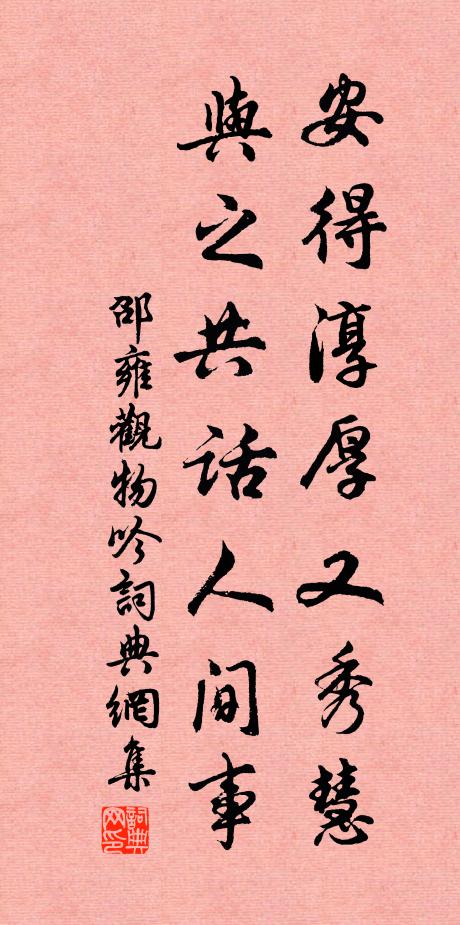 安得淳厚又秀慧
與之共話人间事
邵雍觀物吟詞典網集
詞典网印